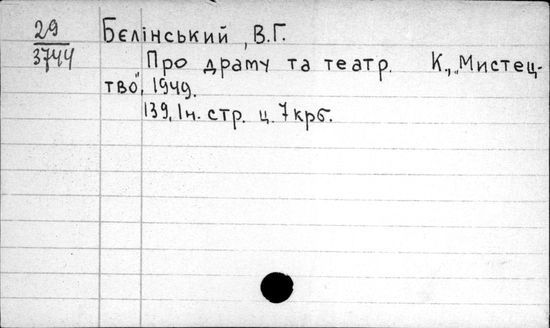 29
3744
Бєлінський, В.Г.
Про драму та театр. К., „Мистец-
тво", 1949.
139, Ін. стр. ц. 7 крб.